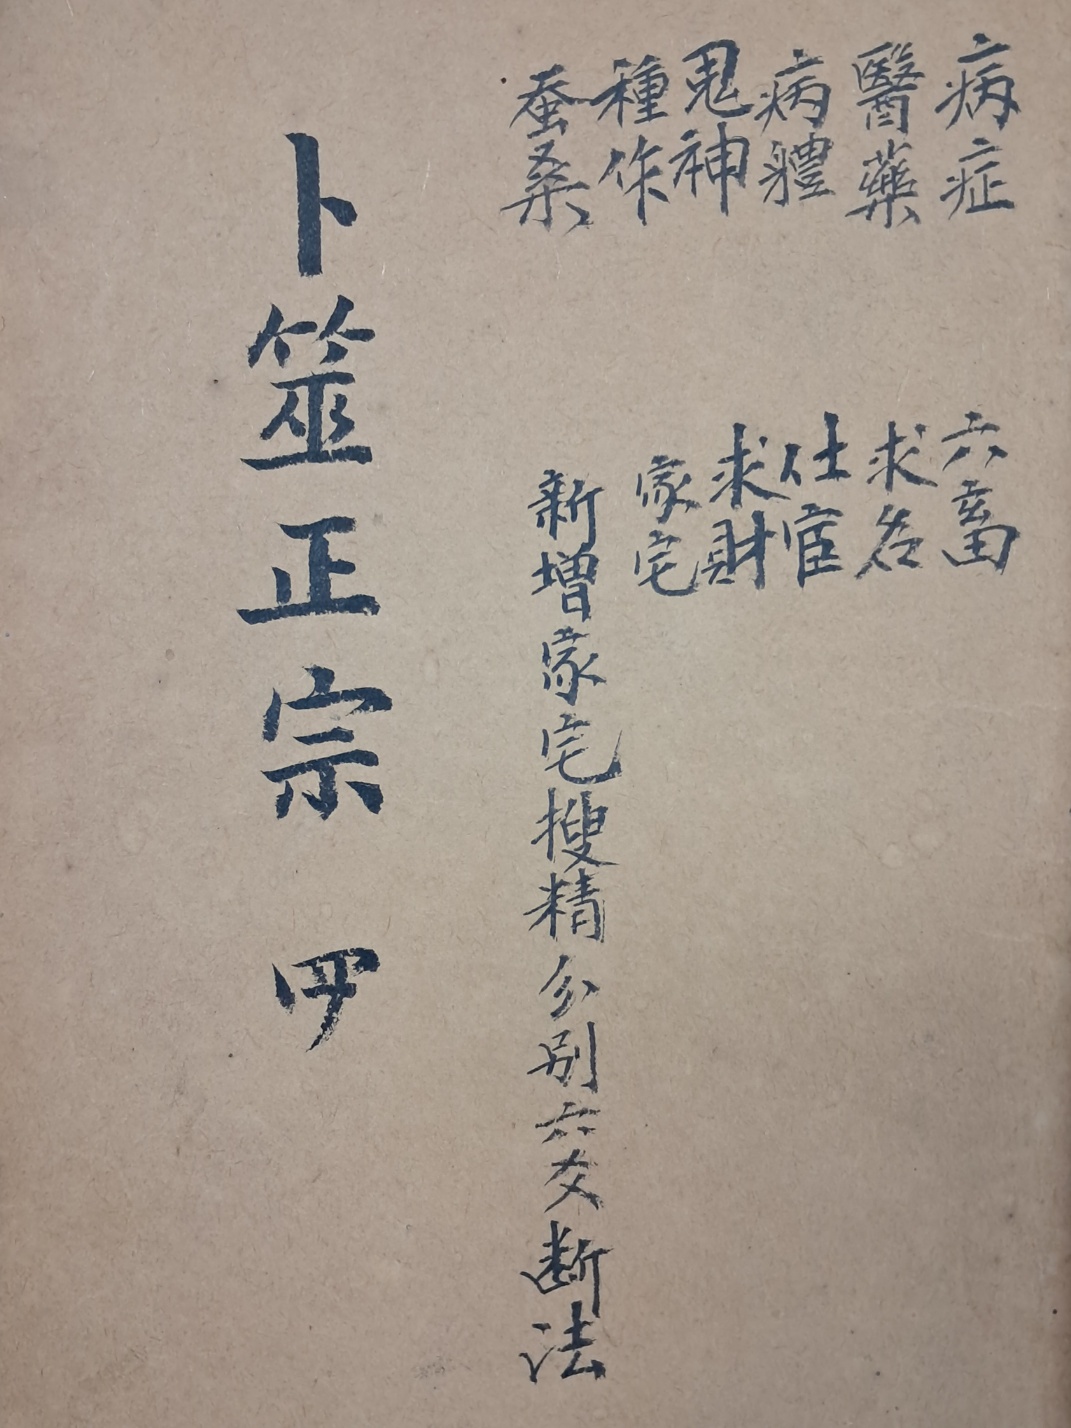 病症
醫藥
病軆
鬼神
種作
蚕桑
六畜
求名
仕宦
求財
家宅
新增家宅搜精分別六爻断法
卜筮正宗 四